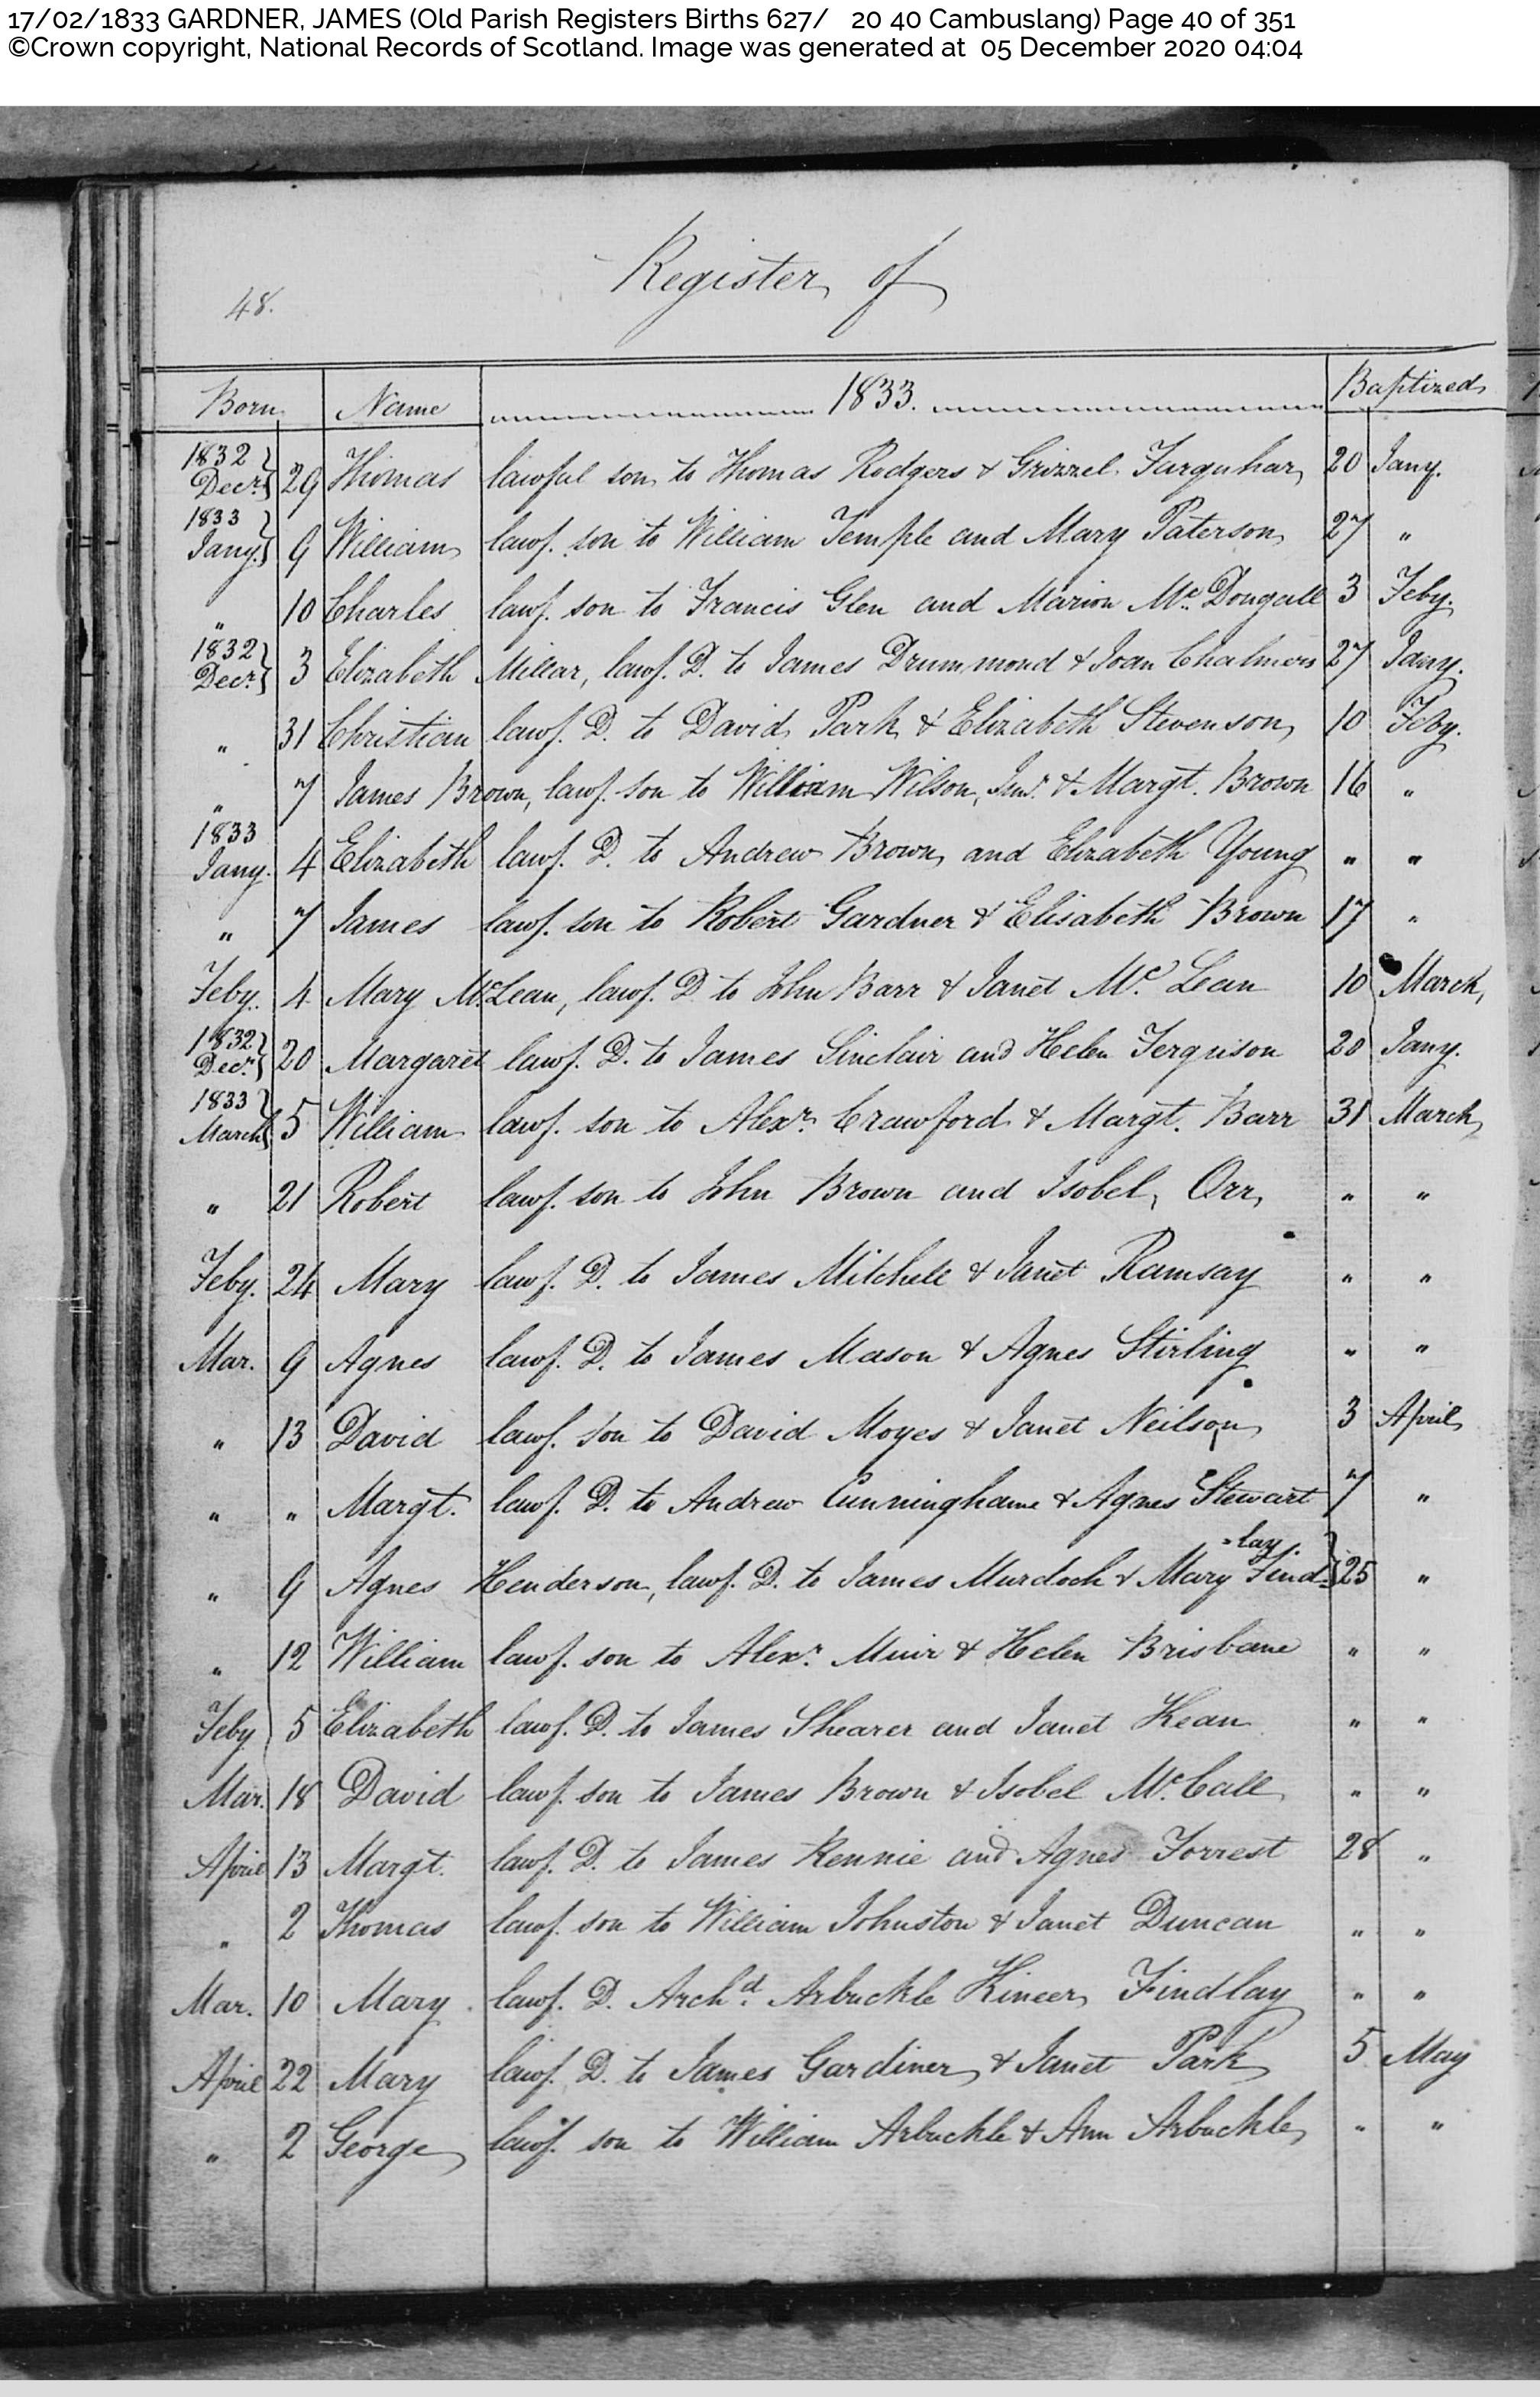 17/02/1833 GARDNER, JAMES (Old Parish Registers Births 627/ 20 40 Cambuslang) Page 40 of 351
©Crown copyright, National Records of Scotland. Image was generated at 05 December 2020 04:04
48.
Register of
Born Name 1833. Baptized
1832 Decr. 29 Thomas lawful son to Thomas Rodgers & Grizzel Farquhar 20 Jany.
1833 Jany. 9 William lawf. son to William Temple and Mary Paterson 27 "
" 10 Charles lawf. son to Francis Glen and Marion Mc.Dougall 3 Feby.
1832 Decr. 3 Elizabeth Millar, lawf. D. to James Drummond & Joan Chalmers 27 Jany.
" 31 Christian lawf. D. to David Park & Elizabeth Stevenson 10 Feby.
" 7 James Brown, lawf. son to William Wilson, Junr. & Margt. Brown 16 "
1833 Jany. 4 Elizabeth lawf. D. to Andrew Brown and Elizabeth Young " "
" 7 James lawf. son to Robert Gardner & Elisabeth Brown 17 "
Feby. 4 Mary Mc.Lean, lawf. D. to John Barr & Janet Mc. Lean 10 March
1832 Decr. 20 Margaret lawf. D. to James Sinclair and Helen Ferguson 20 Jany.
1833 March 5 William lawf. son to Alexr. Crawford & Margt. Barr 31 March
" 21 Robert lawf. son to John Brown and Isobel Orr " "
Feby. 24 Mary lawf. D. to James Mitchell & Janet Ramsay " "
Mar. 9 Agnes lawf. D. to James Mason & Agnes Stirling " "
" 13 David lawf. son to David Moyes & Janet Neilson 3 April
" " Margt. lawf. D. to Andrew Cunninghame & Agnes Stewart 7 "
" 9 Agnes Henderson, lawf. D. to James Murdoch & Mary Find=
=lay. 25 "
" 12 William lawf. son to Alexr. Muir & Helen Brisbane " "
Feby 5 Elizabeth lawf. D. to James Shearer and Janet Kean " "
Mar. 18 David lawf. son to James Brown & Isobel Mc.Call " "
April 13 Margt. lawf. D. to James Rennie and Agnes Forrest 28 "
" 2 Thomas lawf. son to William Johnston & Janet Duncan " "
Mar. 10 Mary lawf. D. Archd. Arbuckle Findlay " "
April 22 Mary lawf. D. to James Gardiner & Janet Park 5 May
" 2 George lawf. son to William Arbuckle & Ann Arbuckle " "